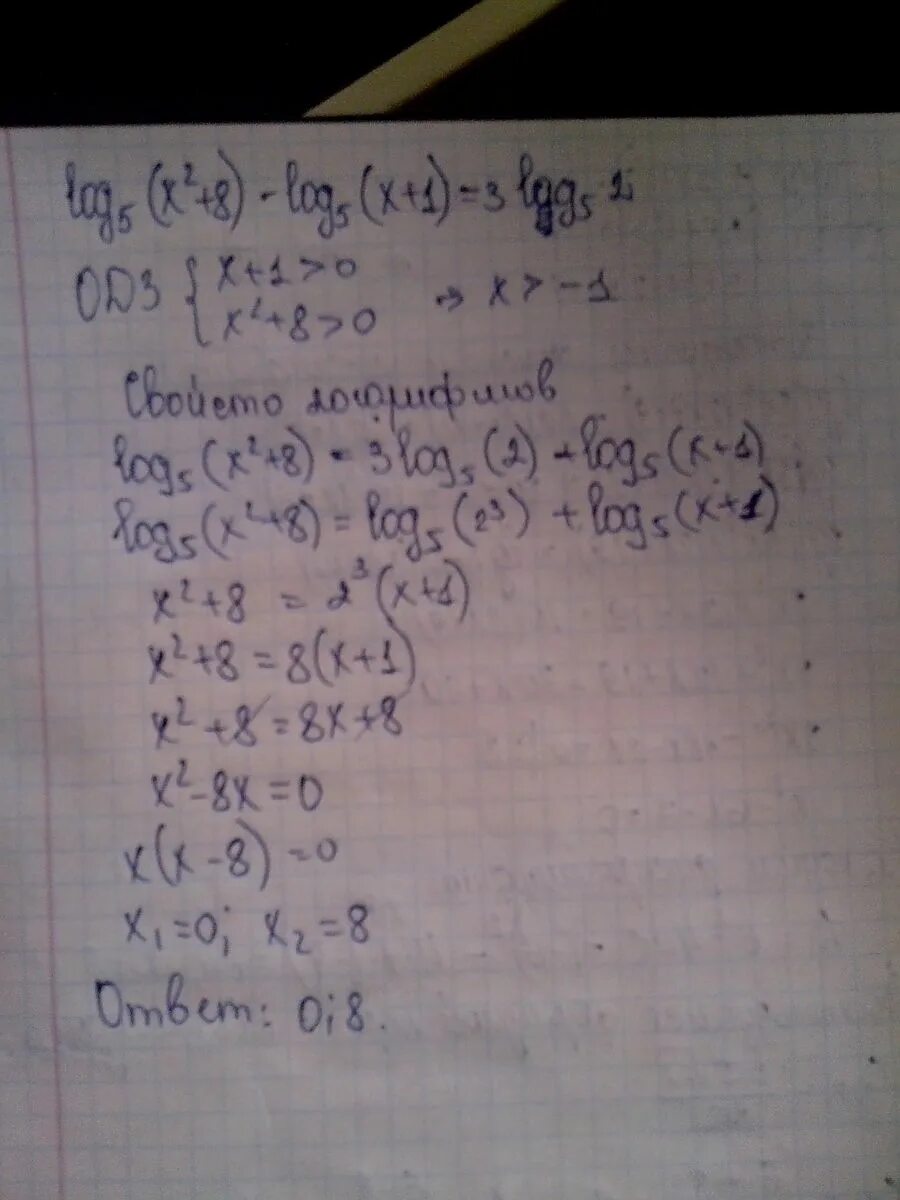 log₅(x²+8) - log₅(x+1) = 3 log₅ 2
ОДЗ { x+1>0
x²+8>0 ⇒ x > -1
Свойсто логарифмов
log₅(x²+8) = 3log₅(2) + log₅(x+1)
log₅(x²+8) = log₅(2³) + log₅(x+1)
x²+8 = 2³(x+1)
x²+8 = 8(x+1)
x²+8 = 8x+8
x²-8x=0
x(x-8)=0
x₁=0; x₂=8
Ответ: 0;8.